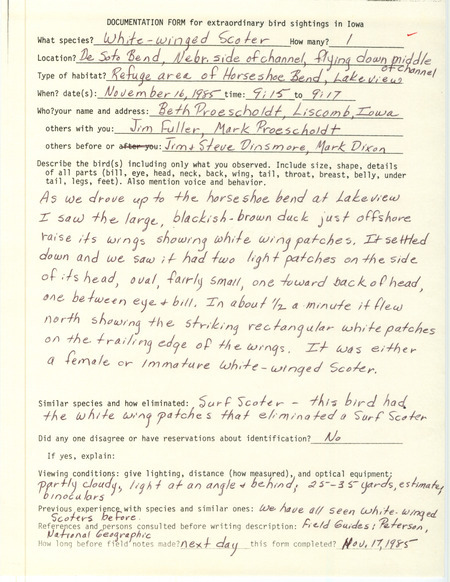 DOCUMENTATION FORM for extraordinary bird sightings in Iowa
What species? White-winged Scoter How many? 1
Location? De Soto Bend, Nebr. side of channel, flying down middle of channel
Type of habitat? Refuge area of Horseshoe Bend, Lakeview
When? date(s): November 16, 1985 time: 9:15 to 9:17
Who? your name and address: Beth Proescholdt, Liscomb, Iowa
others with you: Jim Fuller, Mark Proescholdt
others before or after you: Jim & Steve Dinsmore, Mark Dixon
Describe the bird(s) including only what you observed. Include size, shape, details
of all parts (bill, eye, head, neck, back, wing, tail, throat, breast, belly, under
tail, legs, feet). Also mention voice and behavior.
As we drove up to the horseshoe bend at Lakeview
I saw the large, blackish-brown duck just offshore
raise its wings showing white wing patches. It settled
down and we saw it had two light patches on the side
of its head, oval, fairly small, one toward back of head,
one between eye & bill. In about 1/2 a minute it flew
north showing the striking rectangular white patches
on the trailing edge of the wings. It was either
a female or immature White-winged Scoter.
Similar species and how eliminated: Surf Scoter - this bird had
the white wing patches that eliminated a Surf Scoter
Did any one disagree or have reservations about identification? No
If yes, explain:
Viewing conditions: give lighting, distance (how measured), and optical equipment:
partly cloudy, light at an angle & behind, 25-35 yards, estimate,
binoculars
Previous experience with species and similar ones: We have all seen White-winged
Scoters before.
References and persons consulted before writing description: Field Guides: Peterson,
National Geographic
How long before field notes made? next day this form completed? Nov. 17, 1985